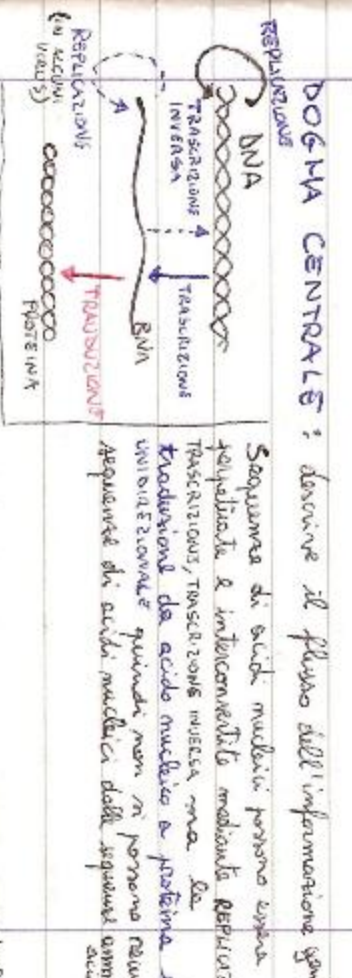 DOGMA CENTRALE: descrive il flusso dell'informazione ge
REPLICAZIONE
DNA
TRASCRIZIONE
INVERSA
TRASCRIZIONE
RNA
REPLICAZIONE
(IN ALCUNI
VIRUS)
TRADUZIONE
PROTEINA
Sequenze di acidi nucleici possono essere
perpetuate e interconvertite mediante REPLICAZ
TRASCRIZIONE, TRASCRIZIONE INVERSA ma la
traduzione da acido nucleico a proteina
UNIDIREZIONALE quindi non si possono
sequenze di acidi nucleici dalle sequenze amm